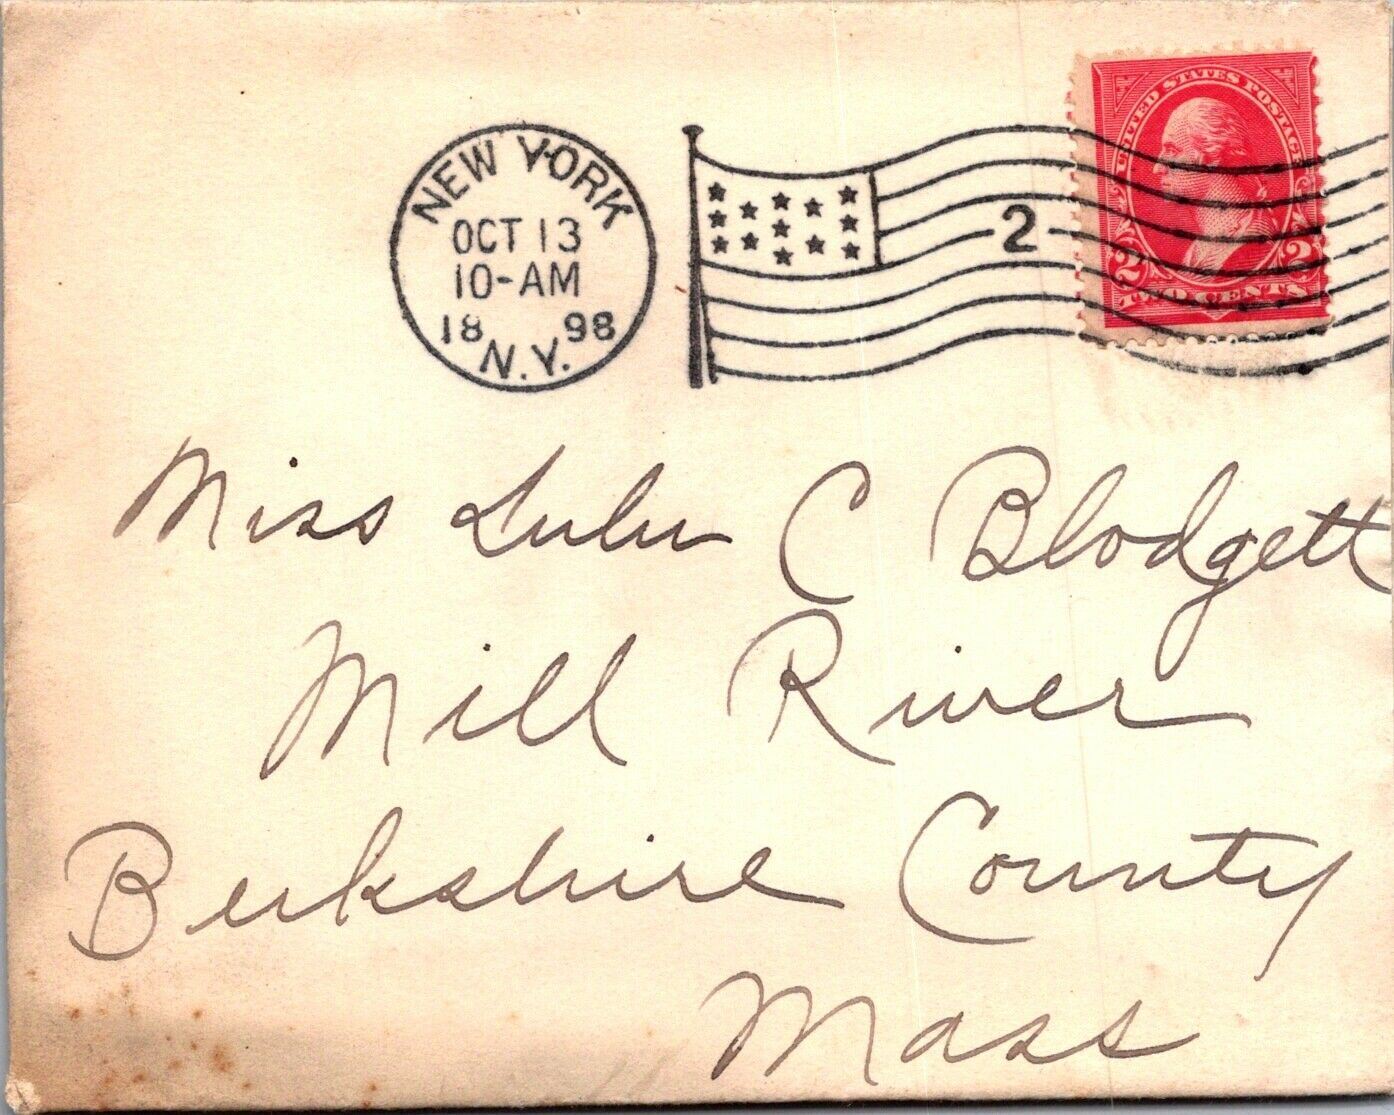 NEW YORK
OCT 13
10-AM
18 98
N.Y.
2
UNITED STATES POSTAGE
2 2
TWO CENTS
Miss Lulu C Blodgett
Mill River
Berkshire County
Mass